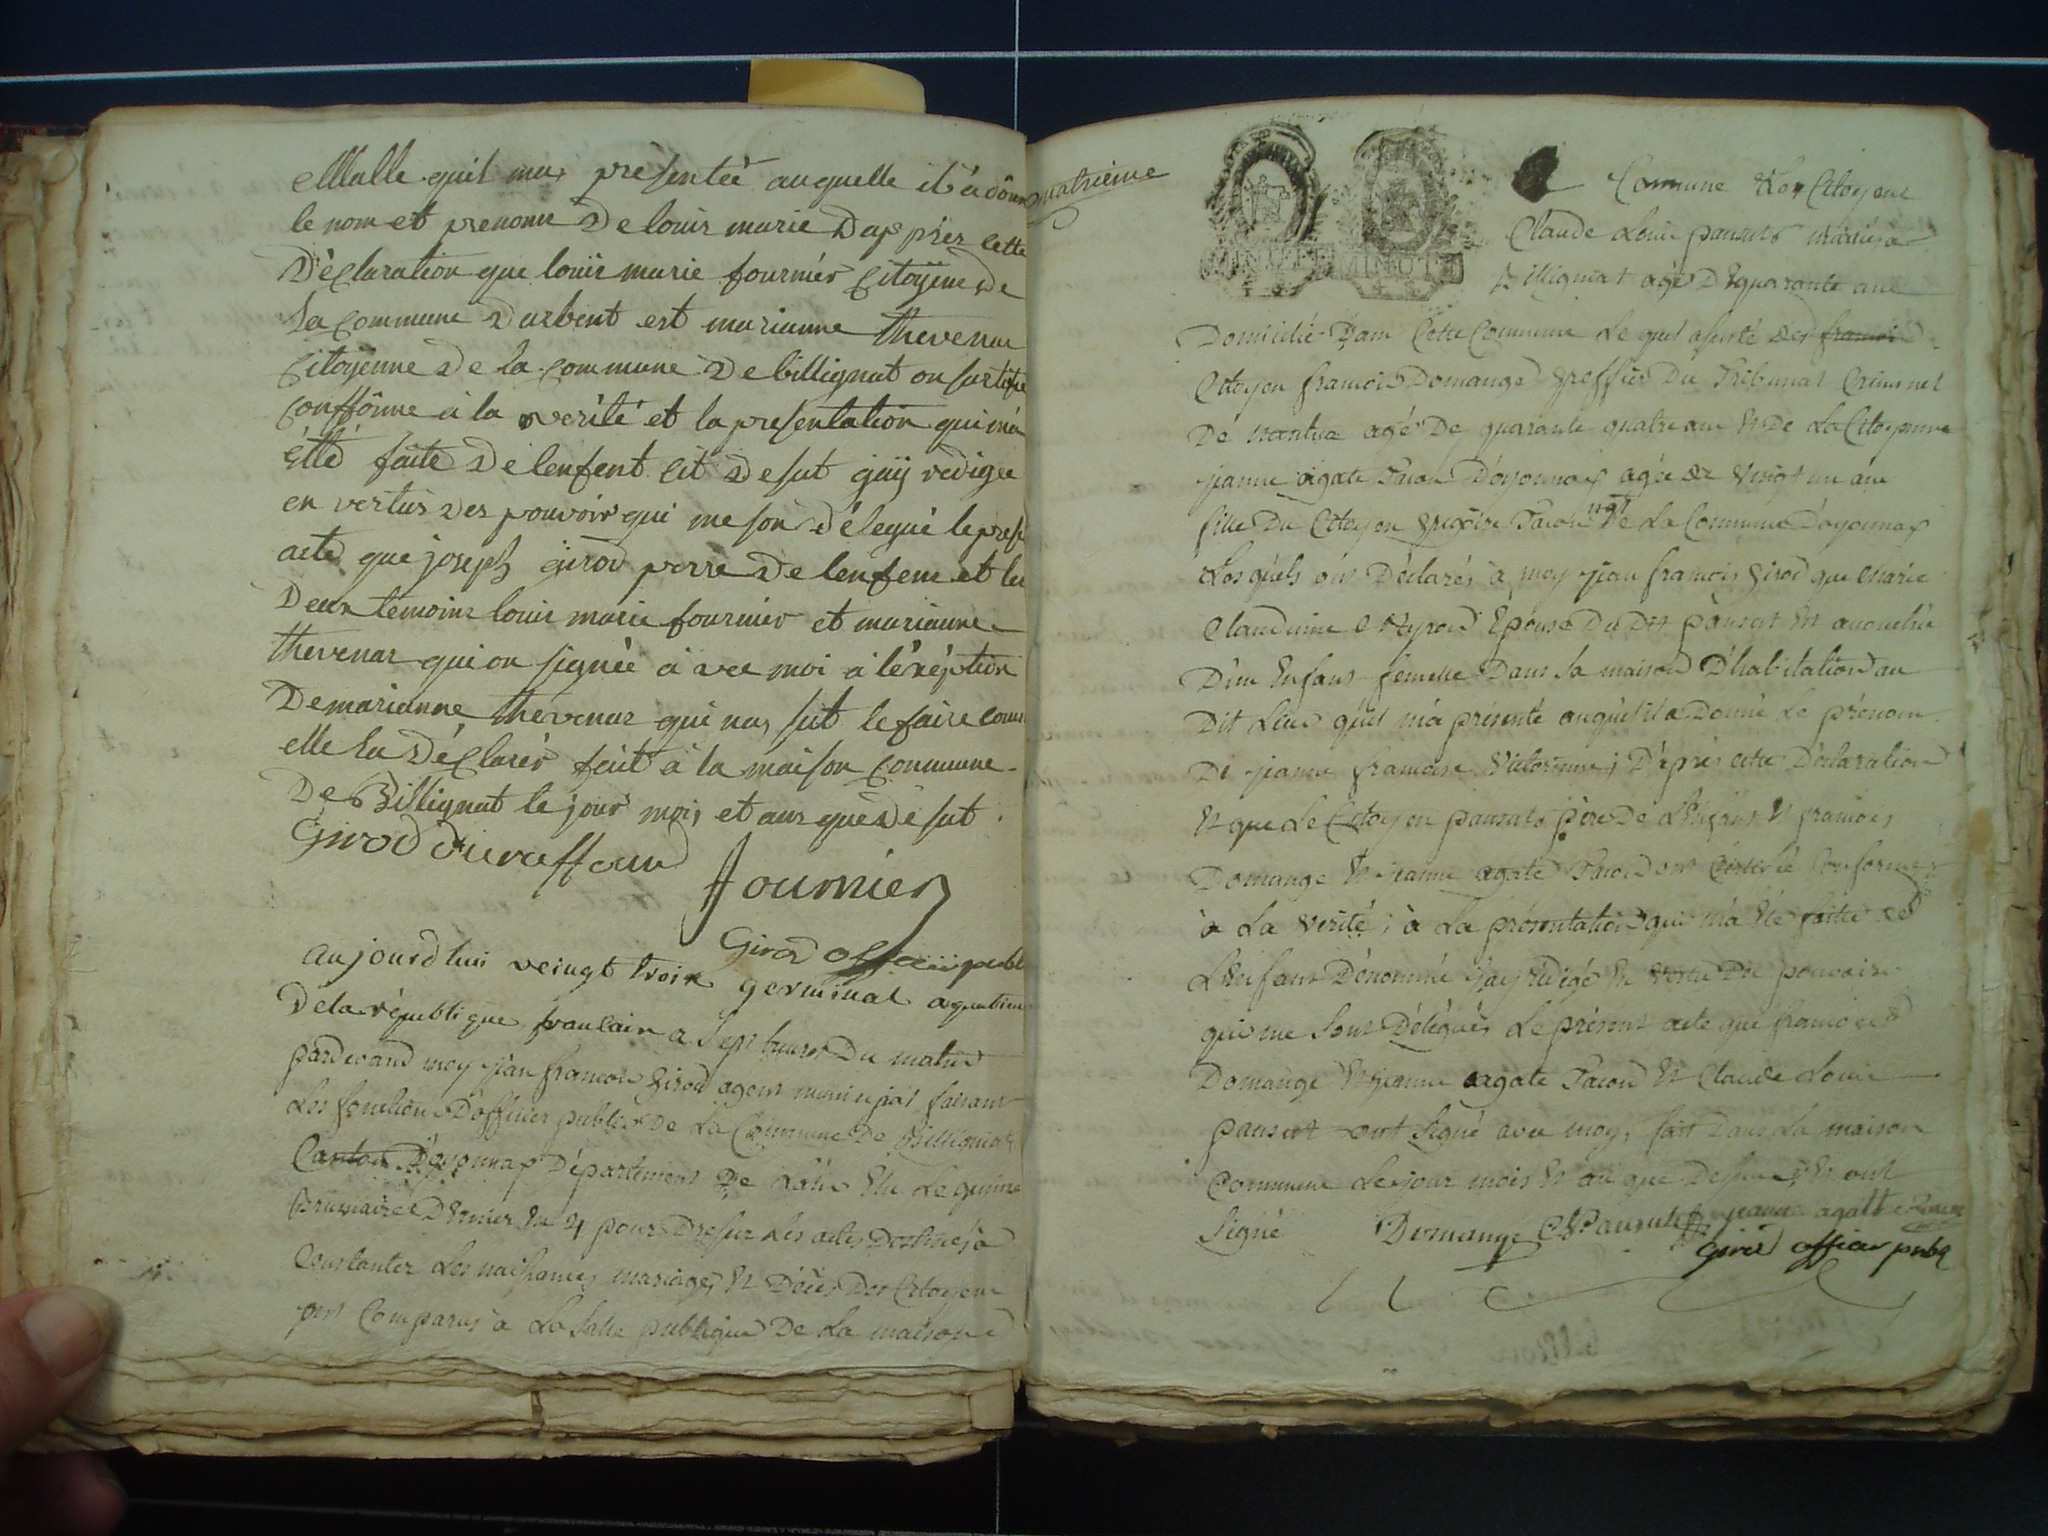 eMalle quil mas présentée auquelle il à donn
le nom et prenom De louis marie Dap prèz cette
Déclaration que louis marie fournier Citoÿene de
La Commune Darbent est marianne thevenar
Citoyenne De la Commune De billignat on
à la verité et la presentation qui ma
étté faite De lenfent cit Desut jaÿ redigee
en vertus des pouvoir qui me son délegué le prese
acte que joseph girod perre De lenfene et les
Deux temoins louis marie fournier et marianne
thevenar qui on signée à vec moi à
De marianne thevenar qui na sut le faire comm
elle la Déclarér fait à la maison Commune
De Billignat le jour mois et ans que De sut
Girod
fournier
Girod publi
aujourdhuis veingt troix germinal
De la république francain a sept heures Du matin
pardevand moy jean francois Girod agent municipal faisant
Les fonctions D'officier public De La Commune De Billignat
Canton D'oyonnax Département De L'ain Elu Le quinze
Brumaire Dernier En 4 pour Dresser Les actes Destinés à
Constanter Les naissances mariages Et Décès Des Citoyens
ont Comparus à La Salle publique De La maison
quatrieme
MINUTE MINUTE
Commune Les Citoyens
Claude Louis pansut
Billigniat agé De quarante ans
Domicilié Dans Cette Commune Le quel assisté des
Citoyen francois Domange Greffier Du Tribunal Criminel
De nantua agé De quarante quatre ans Et De La Citoyenne
jeanne agate Tacon D'oyonnax agée de Vingt un ans
fille Du Citoyen Tacon De La Commune D'oyonnax
Lesquels ont Déclarés à moy jean francois Girod que Marie
Claudinne Epouse Du Dit pansut Est
D'un Enfant femelle Dans sa maison D'habitation au
Dit Lieu quil m'a présenté auquel il a Donné Le prénom
De jeanne francoise Victorinne; D'après cette Déclaration
Et que Le Citoyen pansut père De L'enfant Et francois
Domange Et jeanne agate Tacon ont Conforme
à La Verité; à La présentation qui m'a Eté faitte de
L'enfant Dénommé j'ay rédigé En Vertu Des pouvoirs
qui me Sont Délégués Le présent acte que francois
Domange Et jeanne agate Tacon Et Claude Louis
pansut ont Signé avec moy, fait Dans La maison
Commune Le jour mois Et an que Dessus Et ont
Signé Domange jeanne agatte
Girod officier publ